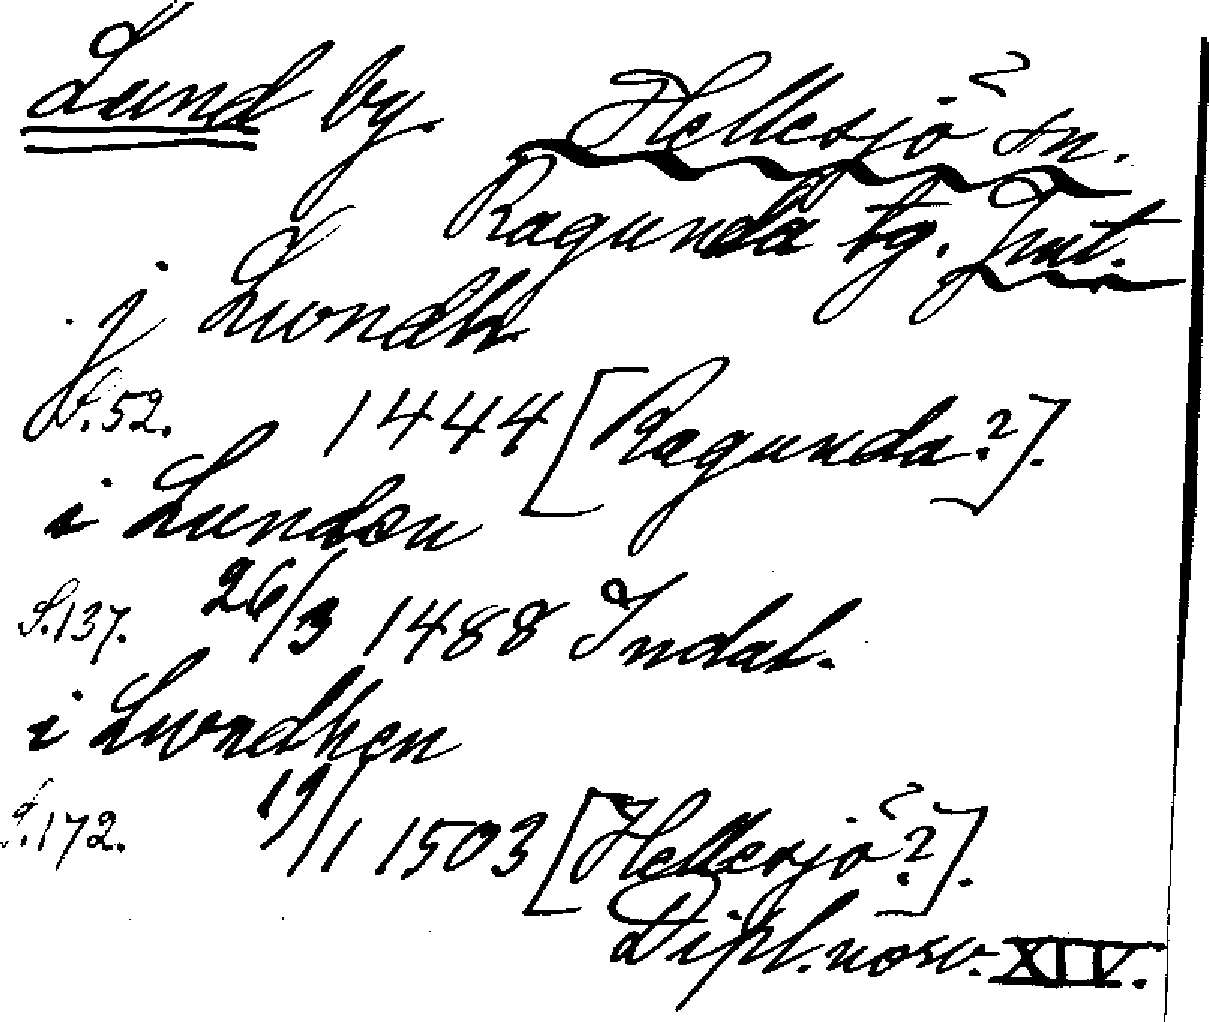 Lund by. Hellesjö sn.
Ragunda tg. Jmt.
j Lwndh
S.52. 1444 [Ragunda?].
i Lunden
S.137. 26/3 1488 Indal.
i Lwndhen
S.172. 19/1 1503 [Hellesjö?].
Dipl. norv. XIV.